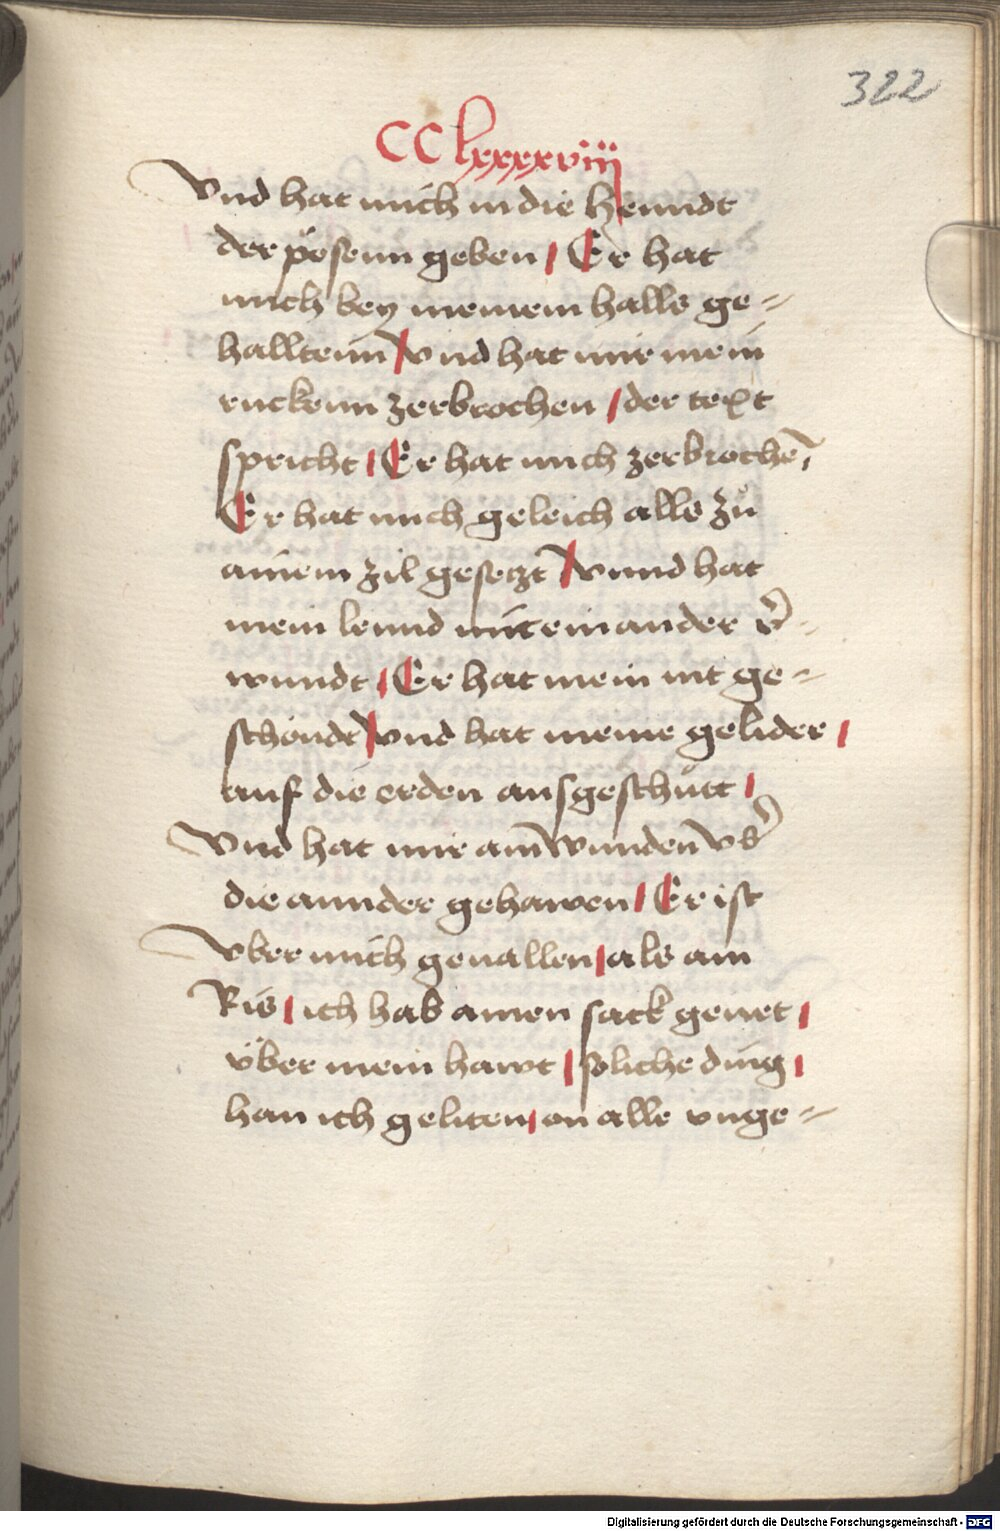 322
CClxxxxviii
Vnd hat mich in die henndt
der pösenn geben / Er hat
mich bey meinem halls ge=
halltenn / vnd hat mir mein
ruckenn zerbrochen / der text
spricht / Er hat mich zerbrochē,
Er hat mich geleich alls zů
ainem zil gesetzt / vnnd hat
mein lennd mit einander v̄=
wundt / Er hat mein nit ge=
schöndt / vnd hat meine gelider /
auf die erden ausgeschütt /
Vnd hat mir ain wunden vb̄
die annder gehawen / Er ist
vber mich geuallen / als ain
Ris / ich hab ainen sack genet /
über mein hawt / soliche ding /
han ich geliten / on alle vnge=
Digitalisierung gefördert durch die Deutsche Forschungsgemeinschaft - DFG